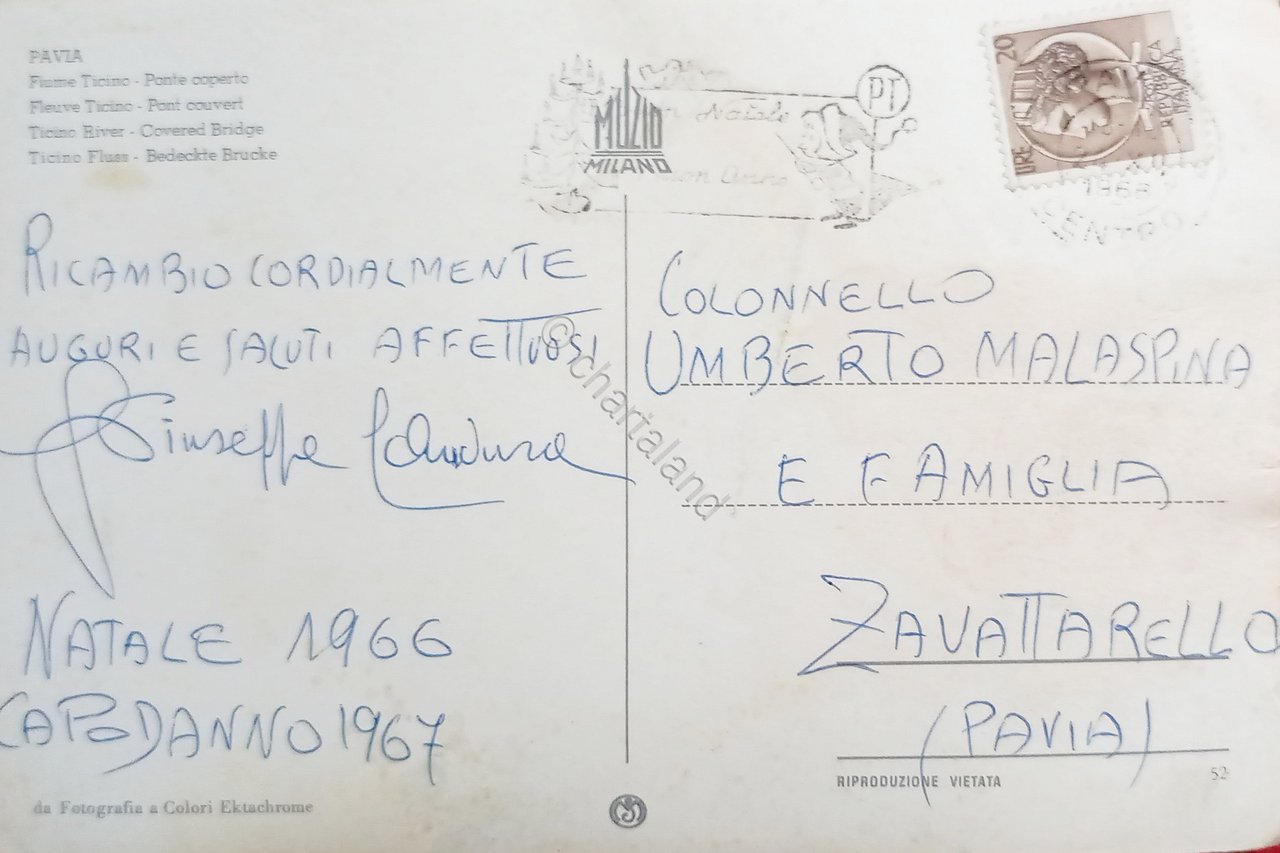 PAVIA
Fiume Ticino - Ponte coperto
Fleuve Ticino - Pont couvert
Ticino River - Covered Bridge
Ticino Fluss - Bedeckte Brucke
MUZIO
MILANO
Natale
Buon Anno
PT
LIRE 20
REPUBBLICA
ITALIANA
1966
CENTRO
RICAMBIO CORDIALMENTE
AUGURI E SALUTI AFFETTUOSI
Giuseppe
NATALE 1966
CAPODANNO 1967
COLONNELLO
UMBERTO MALASPINA
E FAMIGLIA
ZAVATTARELLO
(PAVIA)
RIPRODUZIONE VIETATA
52
da Fotografia a Colori Ektachrome
©chartaland